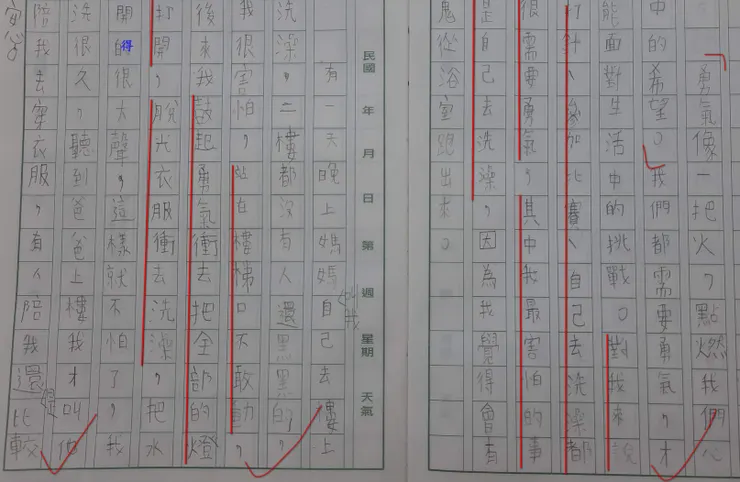 勇氣像一把火，點燃我們心
中的希望。我們都需要勇氣，才
能面對生活中的挑戰。對我來說
打針、參加比賽、自己去洗澡都
很需要勇氣，其中我最害怕的事
是自己去洗澡，因為我覺得會有
鬼從浴室跑出來。
民國 年 月 日 第 週 星期 天氣
有一天晚上媽媽叫我自己去樓上
洗澡，二樓都沒有人還黑黑的，
我很害怕，站在樓梯口不敢動，
後來我鼓起勇氣衝去把全部的燈
打開，脫光衣服衝去洗澡，把水
開得很大聲，這樣就不怕了，我
洗很久，聽到爸爸上樓我才叫他
陪我去穿衣服，有人陪我還是比較
安心